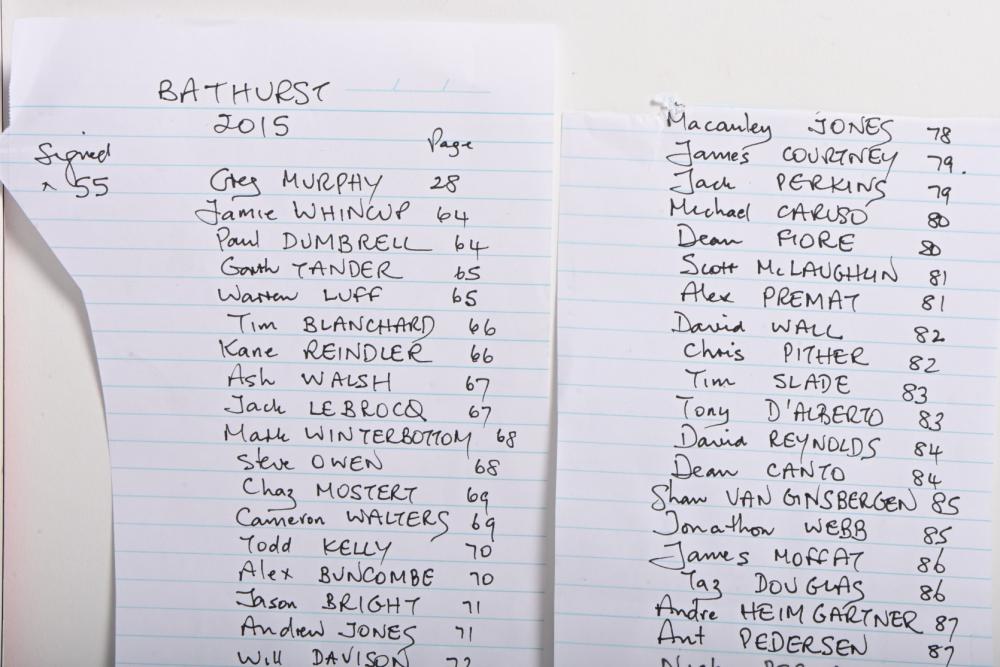 BATHURST
2015
Page
Signed
x 55
Greg MURPHY 28
Jamie WHINCUP 64
Paul DUMBRELL 64
Garth TANDER 65
Warren LUFF 65
Tim BLANCHARD 66
Kane REINDLER 66
Ash WALSH 67
Jack LE BROCQ 67
Mark WINTERBOTTOM 68
Steve OWEN 68
Chaz MOSTERT 69
Cameron WALTERS 69
Todd KELLY 70
Alex BUNCOMBE 70
Jason BRIGHT 71
Andrew JONES 71
Will DAVISON 72
Macauley JONES 78
James COURTNEY 79.
Jack PERKINS 79
Michael CARUSO 80
Dean FIORE 80
Scott McLAUGHLIN 81
Alex PREMAT 81
David WALL 82
Chris PITHER 82
Tim SLADE 83
Tony D'ALBERTO 83
David REYNOLDS 84
Dean CANTO 84
Shan VAN GINSBERGEN 85
Jonathon WEBB 85
James MOFFAT 86
Taz DOUGLAS 86
Andre HEIMGARTNER 87
Ant PEDERSEN 87